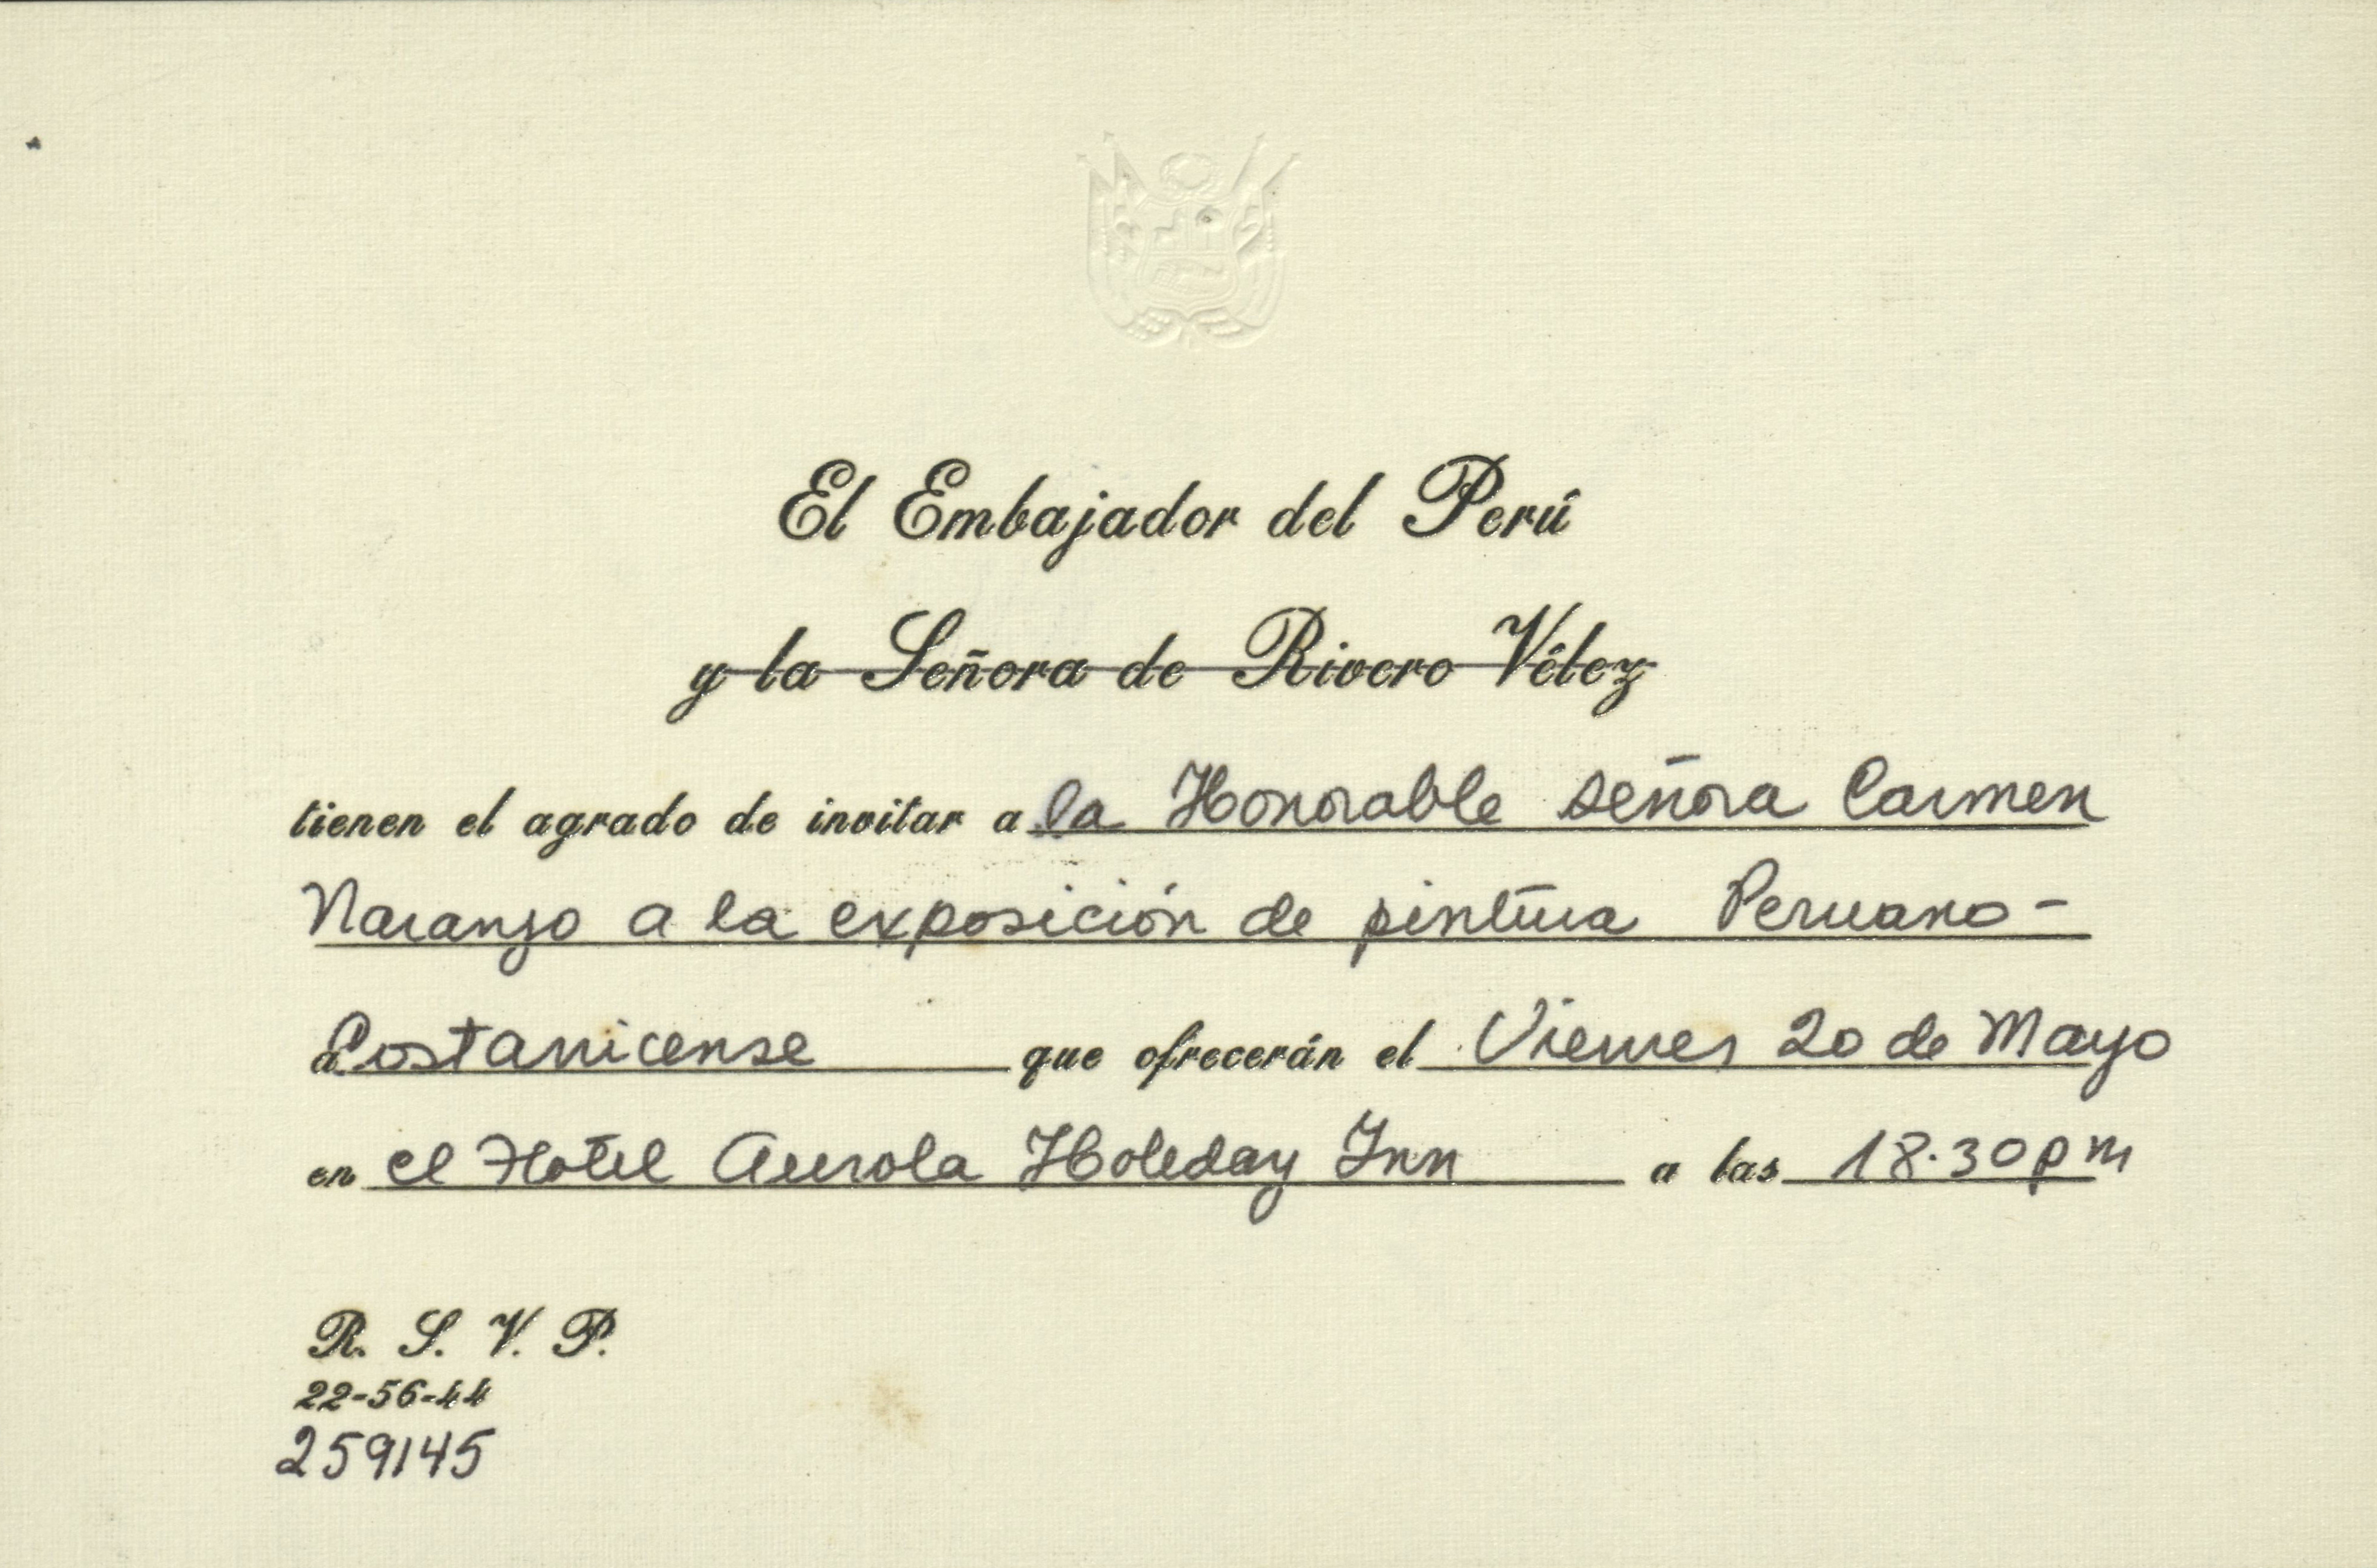 El Embajador del Perú
y la Señora de Rivero Vélez
tienen el agrado de invitar a la Honorable señora Carmen
Naranjo a la exposición de pintura Peruano-
a Costarricense que ofrecerán el Viernes 20 de Mayo
en el Hotel Aurola Holeday Inn a las 18.30 pm
R. S. V. P.
22-56-44
259145